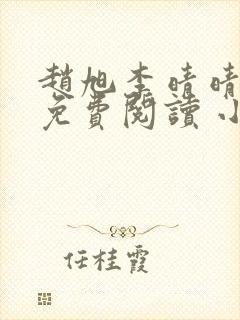 趙旭李晴晴
免費閱讀小
任桂霞